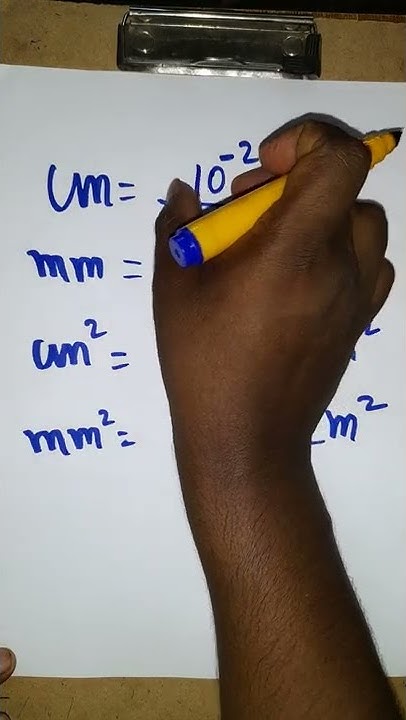 cm = 10⁻²
mm =
cm² = ²
mm² = m²